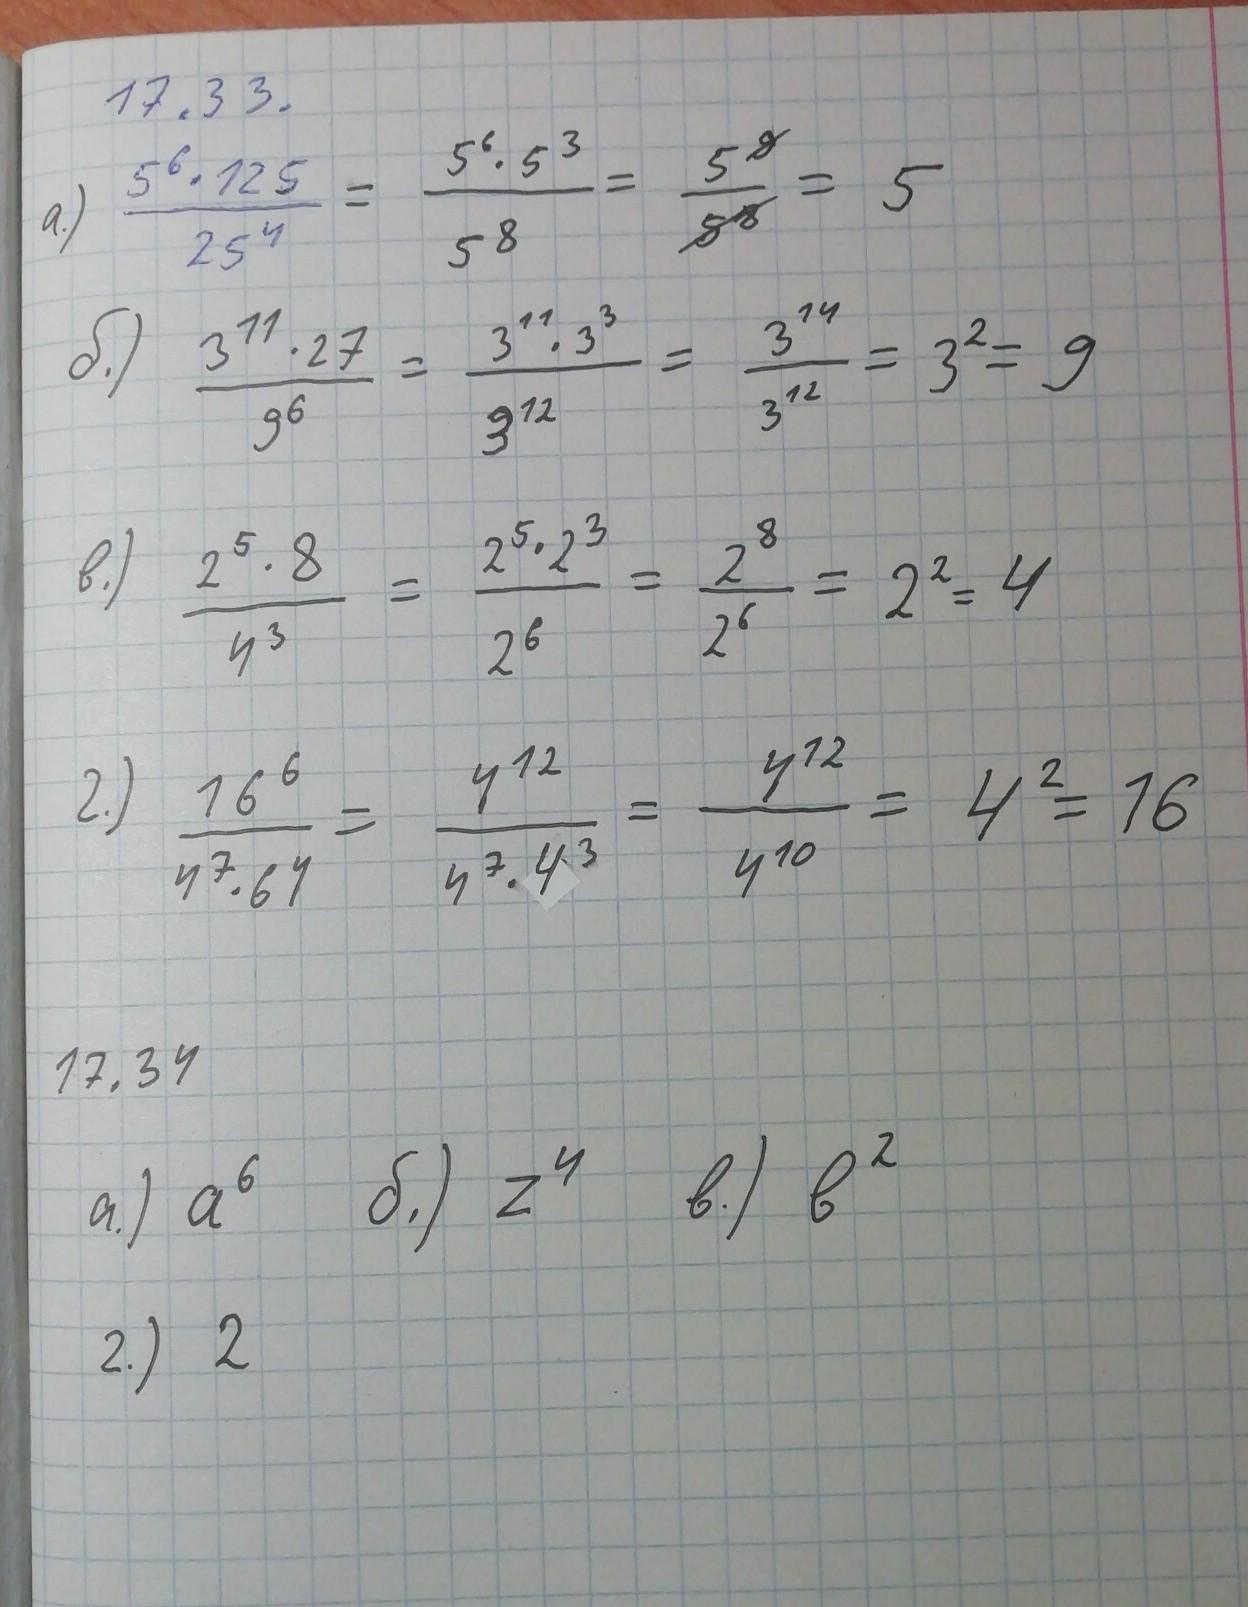 17.33.
а.) 5⁶·125/25⁴ = 5⁶·5³/5⁸ = 5⁹/5⁸ = 5
б.) 3¹¹·27/9⁶ = 3¹¹·3³/3¹² = 3¹⁴/3¹² = 3² = 9
в.) 2⁵·8/4³ = 2⁵·2³/2⁶ = 2⁸/2⁶ = 2² = 4
г.) 16⁶/4⁷·64 = 4¹²/4⁷·4³ = 4¹²/4¹⁰ = 4² = 16
17.34
а.) a⁶ б.) z⁴ в.) в²
г.) 2